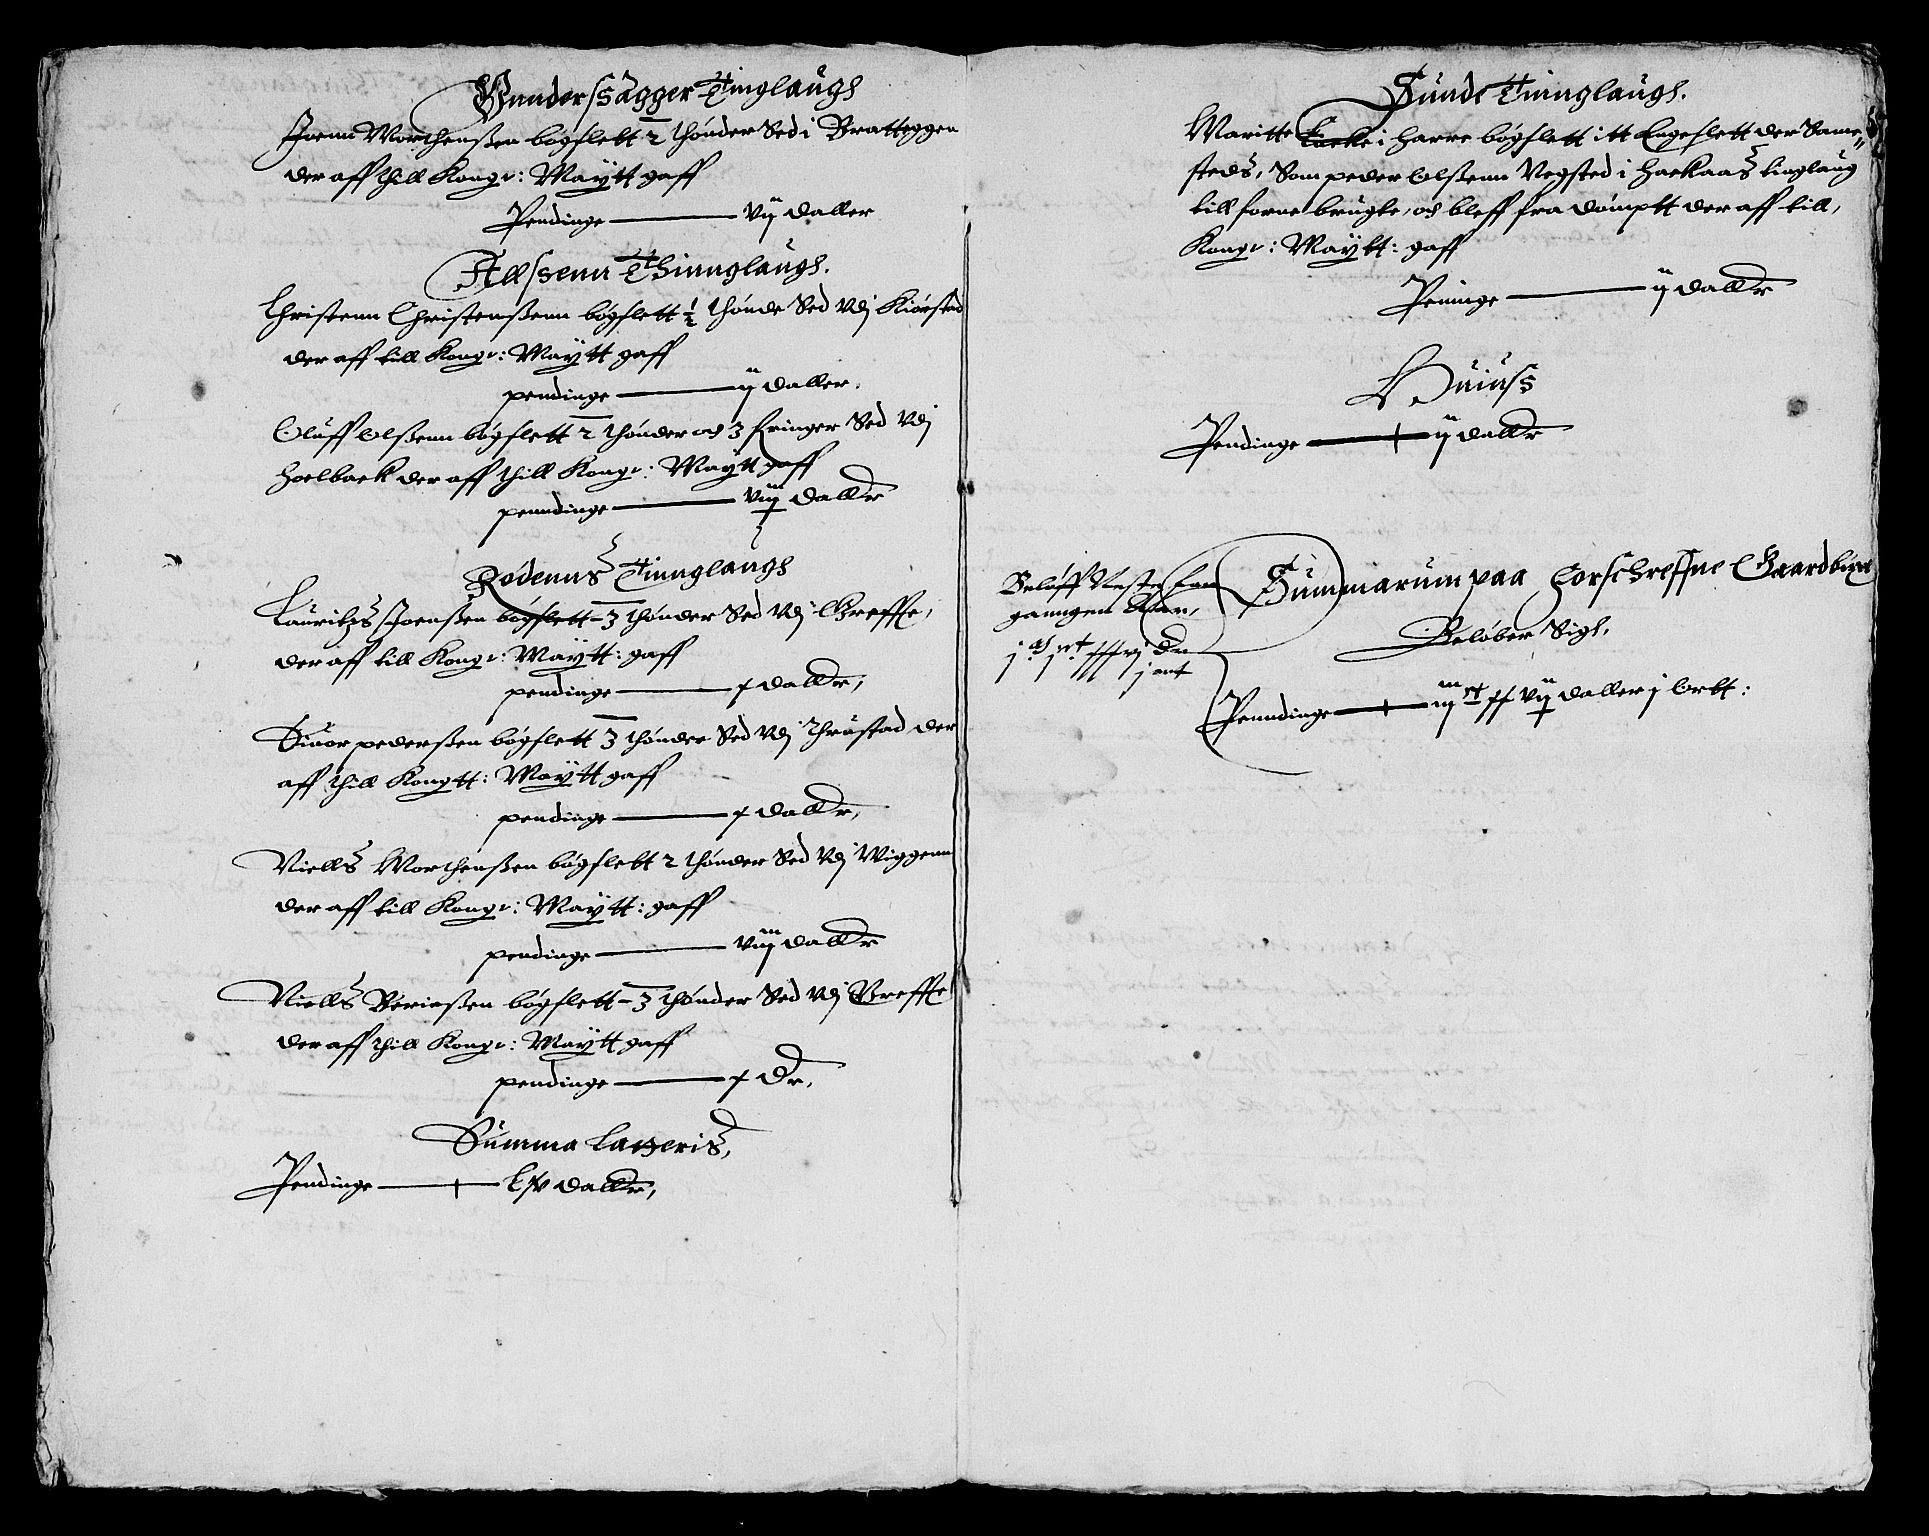 Vunderssager Tinglaugh
Joenn Morthenßen bøgslett 2 thønder Sed i Bratteggen
der aff thill Kongr: Maytt gaff
Pendinge — vij daller
Allssenn Thinnglaugh.
Christenn Christenßenn bøgslett ½ thønde Sed vdj Kiørstad
der aff till Kongr: Maytt gaff
pendinge — ij daller.
Oluff Olßenn bøgslett 2 thønder och 3 fringer Sed vdj
Hoelbaek der aff thill Kongr: Maytt gaff
penndinge — viij dallr
Rødenns Tinnglaugh
Lauritzs Joenßen bøgslett – 3 thønder Sed vdj Greffte,
der aff till Kongr: Maytt: gaff
pendinge — x dallr,
Siuor pederßen bøgslett 3 thønder Sed vdj Thrøstad der
aff thill Kongtt: Maytt gaff
pendinge — x dallr,
Niells Morthenßen bøgslett 2 thønder Sed vdj Wiggenn
der aff till Kongr: Maytt: gaff
pendinge — viij dallr
Niells Børießen bøgslett – 3 thønder Sed vdj Greffte
der aff thill Kongr: Maytt gaff
pendinge — x Dr,
Summa Latteris,
Pendinge — Lxv dallr,
Sunde Tinnglaugh.
Maritte i Harre bøgslett itt Engeslett der Same„
steds, Som peder Olßenn Vegsted i Haekaas tinglaug
till forne brugte, och bleff fra dømptt der aff till,
Kongr: Maytt: gaff
Peninge — ij dallr
Huiuss
Pendinge — ij dallr
Beløff Neste for
ganngen Aar,
j ort
Summarum paa forschreffne Gaardbixel
Beløber Sigh,
Penndinge — iij xx vij daller j Ortt: